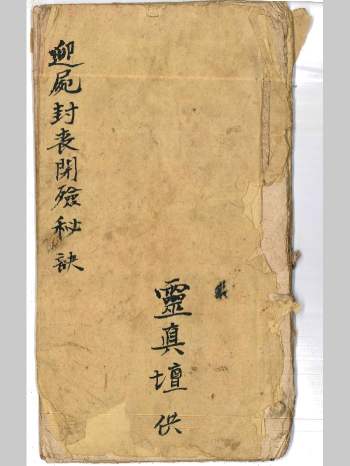 迎屍封喪開殮秘訣
靈真壇供